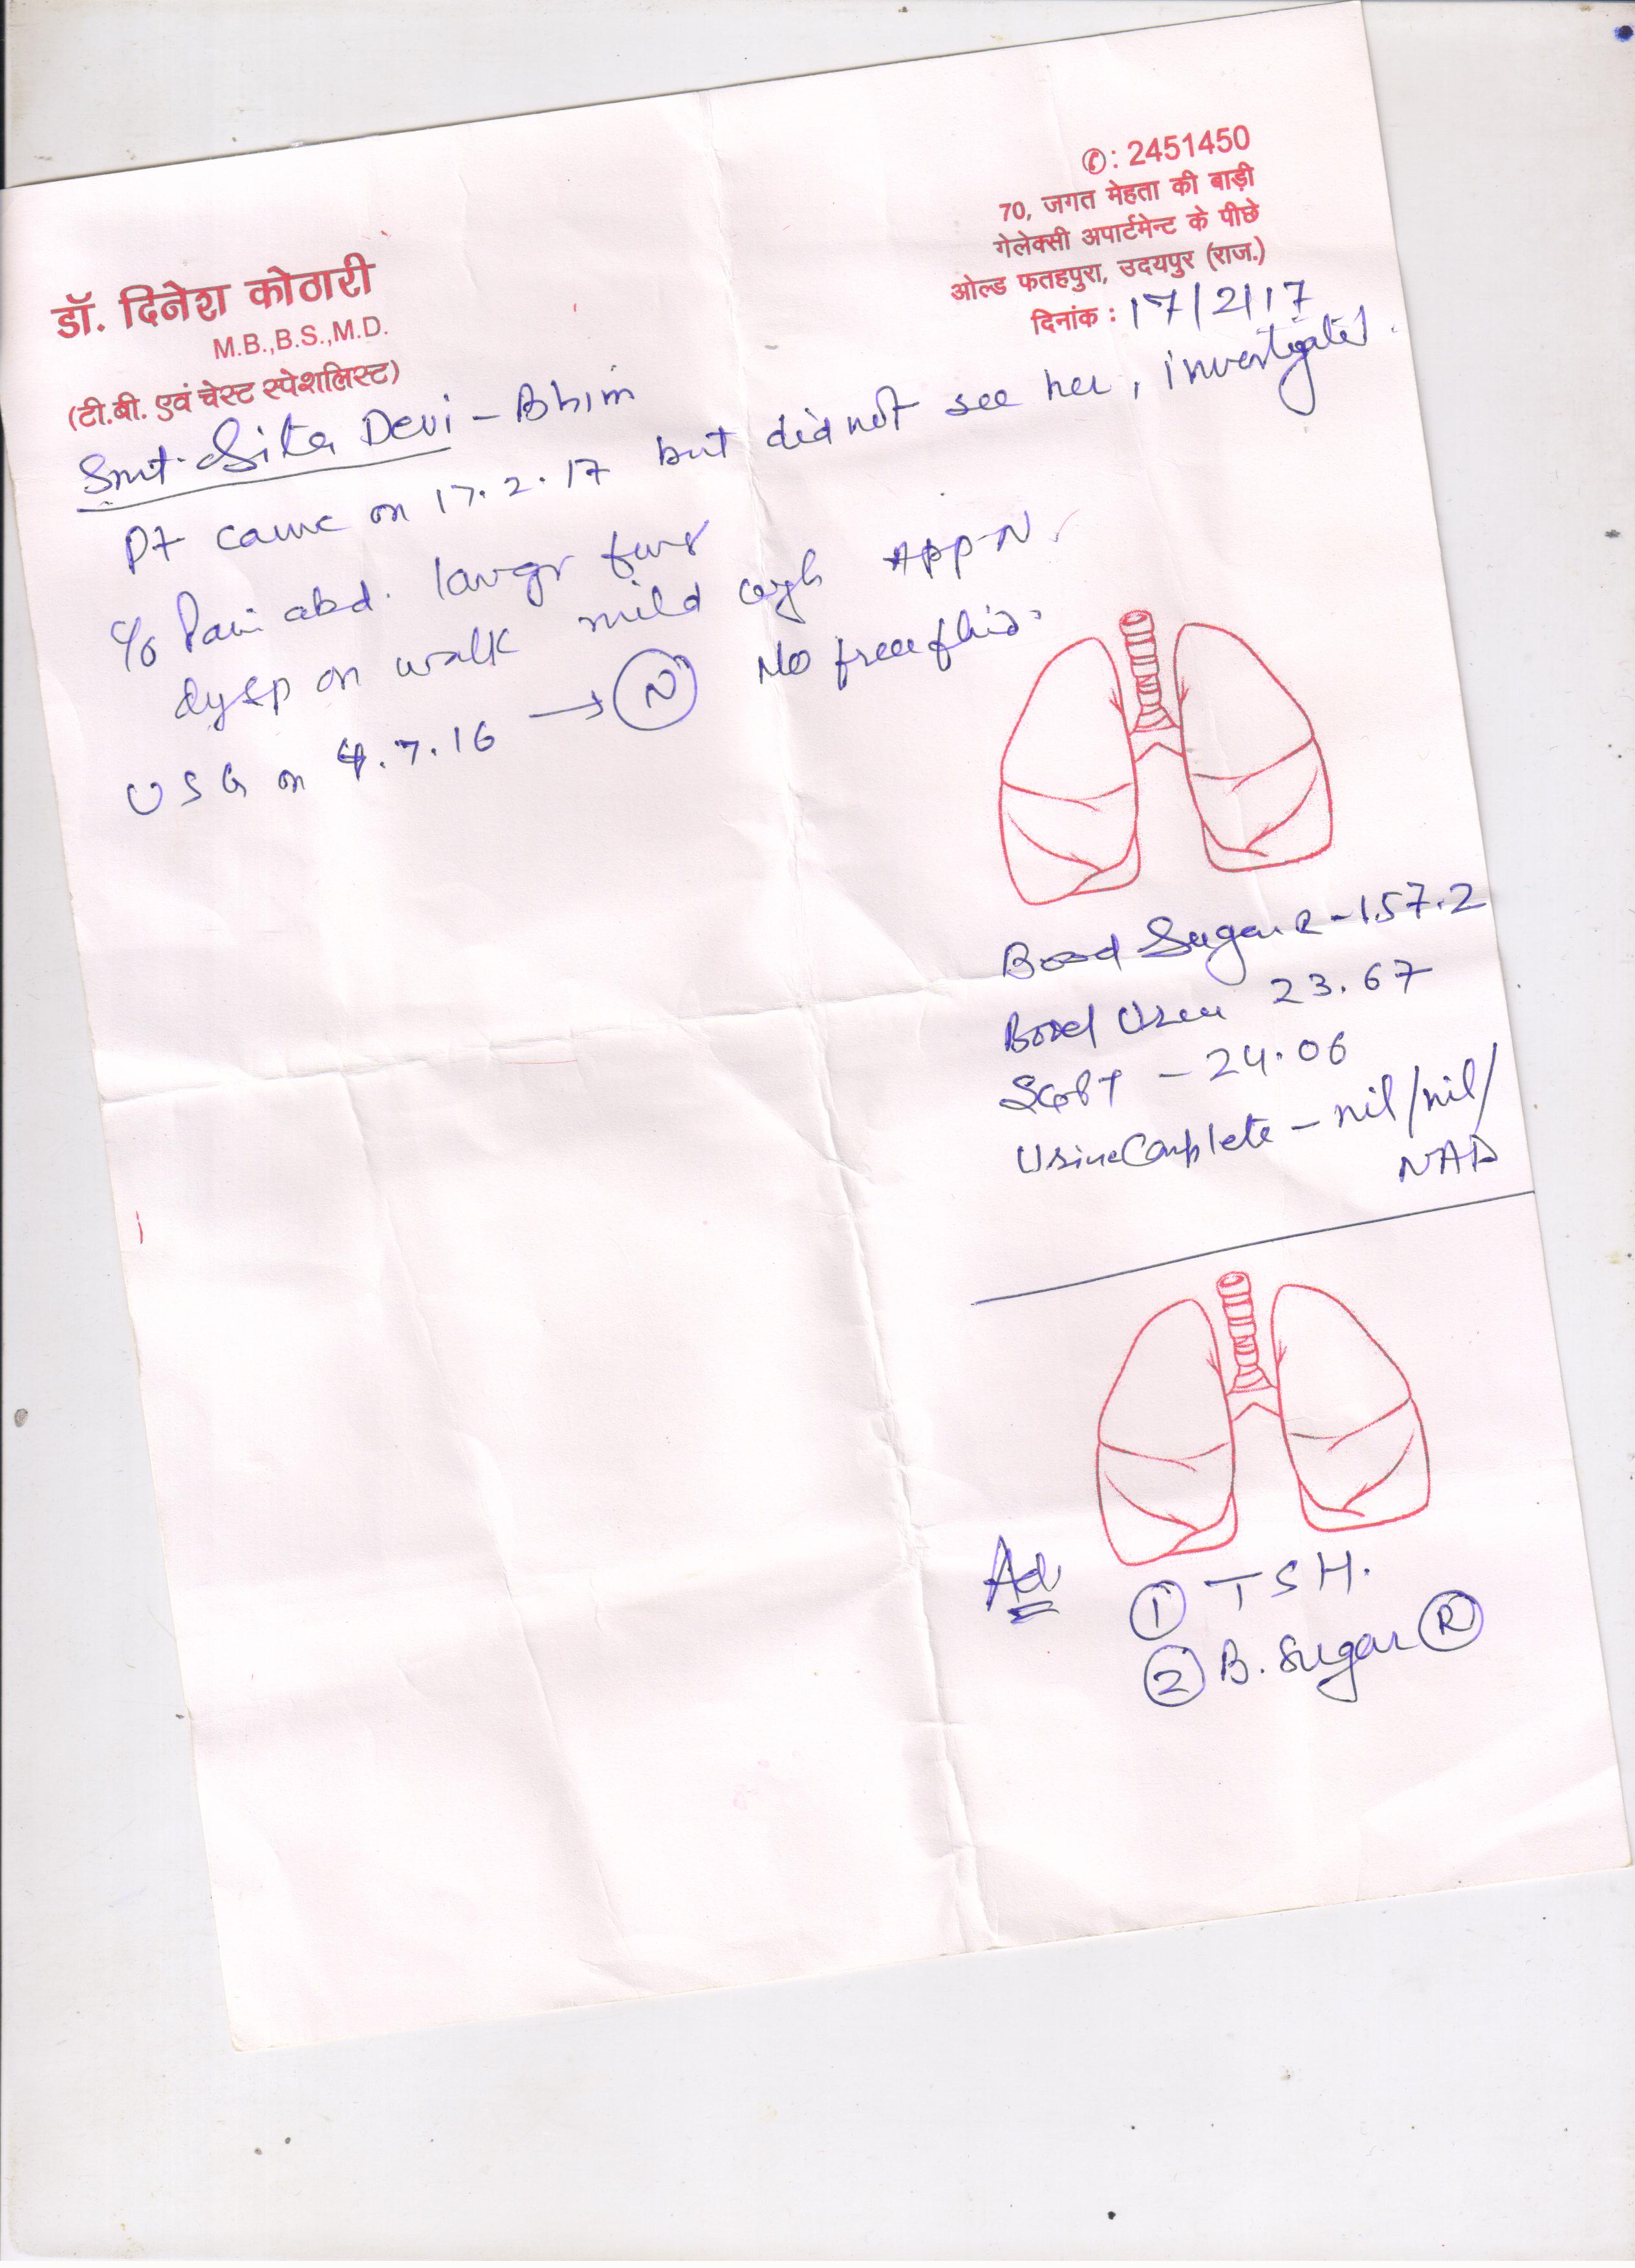 ✆: 2451450
70, जगत मेहता की बाड़ी
गेलेक्सी अपार्टमेन्ट के पीछे
ओल्ड फतहपुरा, उदयपुर (राज.)
दिनांक : 17/2/17
डॉ. दिनेश कोठारी
M.B.,B.S.,M.D.
(टी.बी. एवं चेस्ट स्पेशलिस्ट)
Smt. Sita Devi - Bhim
Pt came on 17.2.17 but did not see her, investigated.
c/o Pain abd.
on walk mild cough App-N
USG on 4.7.16 → N No free fluid.
Blood Sugar R - 157.2
Blood Urea 23.67
SGOT - 24.06
Urine Complete - nil/nil/
NAD
Ad
① TSH.
② B. Sugar R